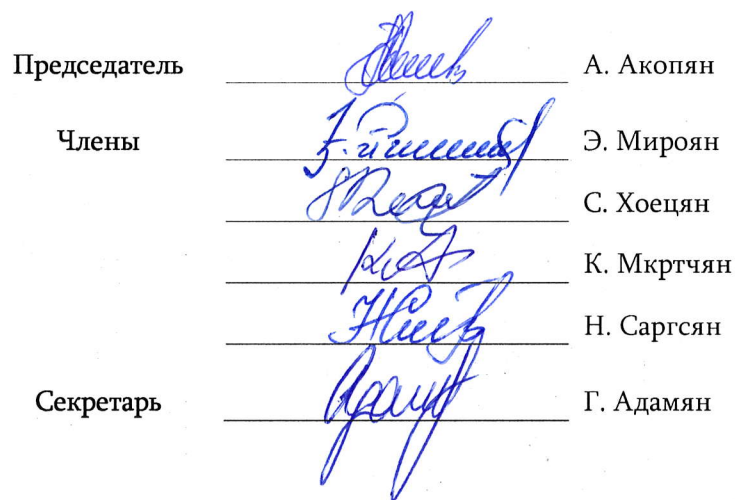 Председатель А. Акопян
Члены Э. Мироян
С. Хоецян
К. Мкртчян
Н. Саргсян
Секретарь Г. Адамян